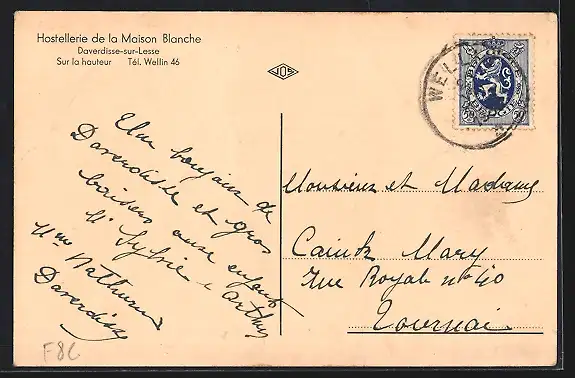 Hostellerie de la Maison Blanche
Daverdisse-sur-Lesse
Sur la hauteur Tél. Wellin 46
JOS
WELLIN
BELGIE
Un bonjour de
Daverdisse et gros
baisers aux enfants
Sylvie & Arthur
Mme Mathurin
Daverdisse
Monsieur et Madame
Mary
Rue Royale n° 40
Tournai
F8C